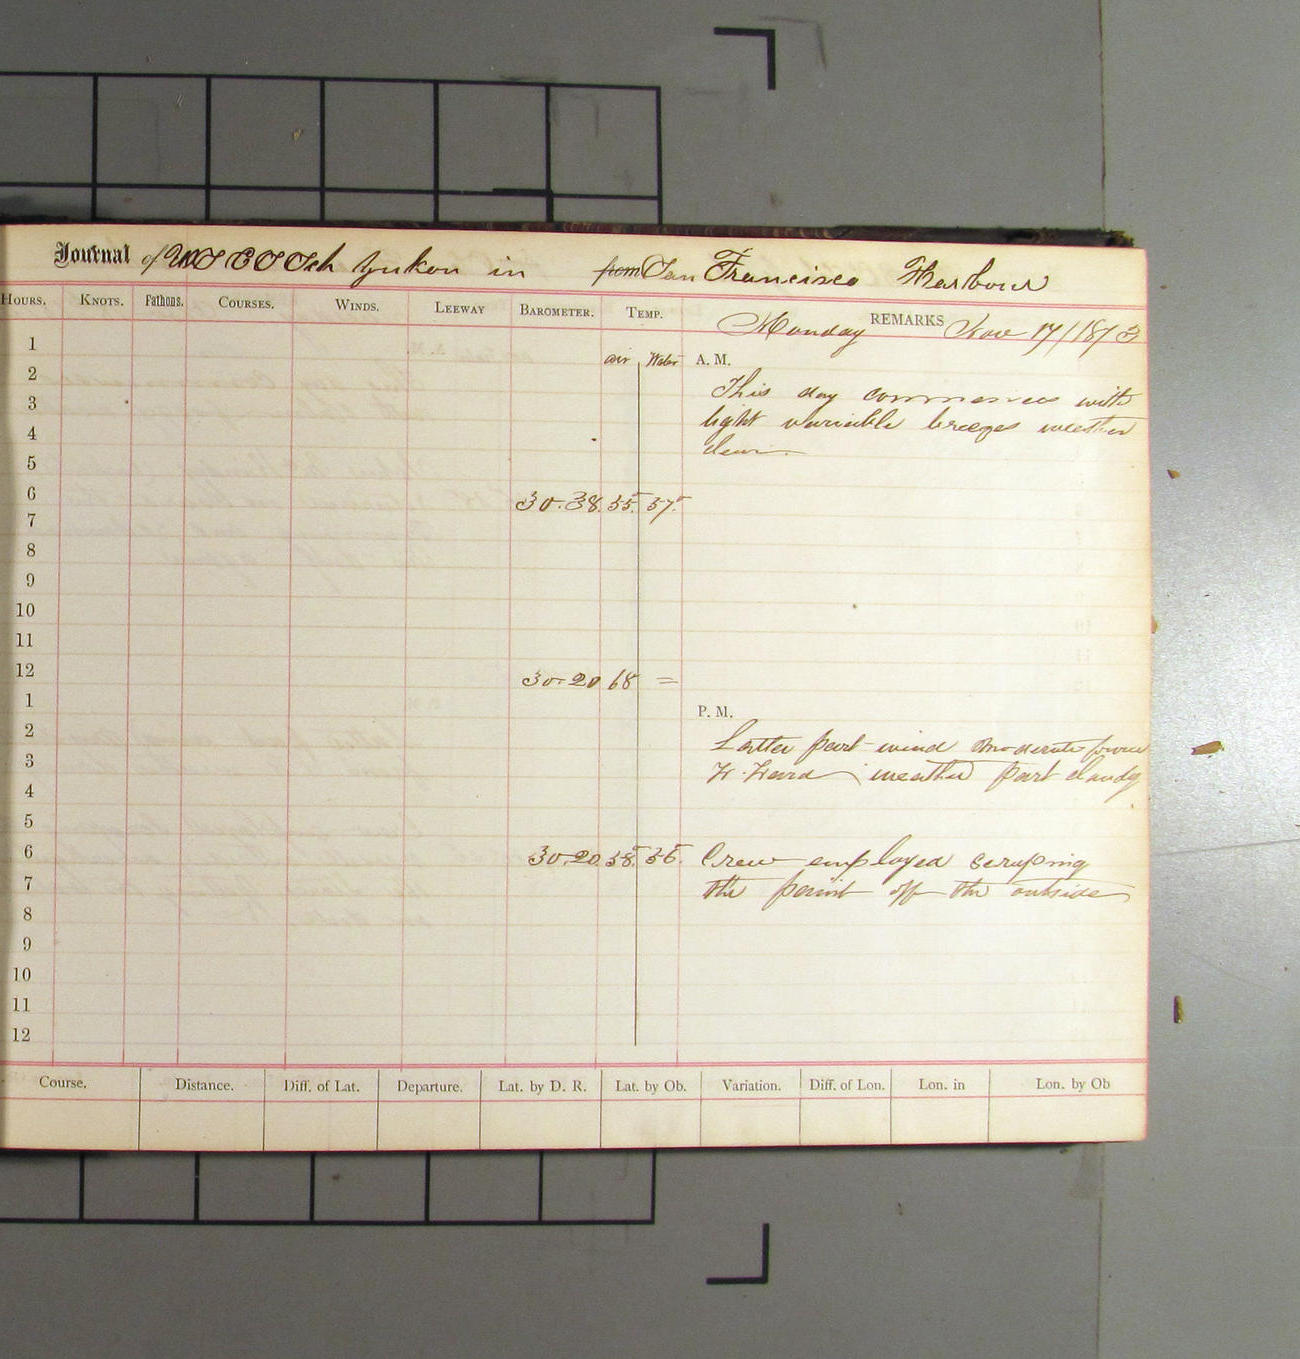 Journal of U S C S Sch Yukon in from San Francisco Harbour
HOURS. KNOTS. Fathoms. COURSES. WINDS. LEEWAY BAROMETER. TEMP. REMARKS
Monday Nov 17/1873
1
air Water A. M.
2
This day commences with
3
light variable breezes weather
4
clear
5
6 30.38. 55. 57.
7
8
9
10
11
12 30.20 68 =
1
P. M.
2 Latter part wind moderate from
3 W. Ward weather part cloudy
4
5
6 30.20. 58. 56. Crew employed scraping
7 the paint off the outside
8
9
10
11
12
Course. Distance. Diff. of Lat. Departure. Lat. by D. R. Lat. by Ob. Variation. Diff. of Lon. Lon. in Lon. by Ob